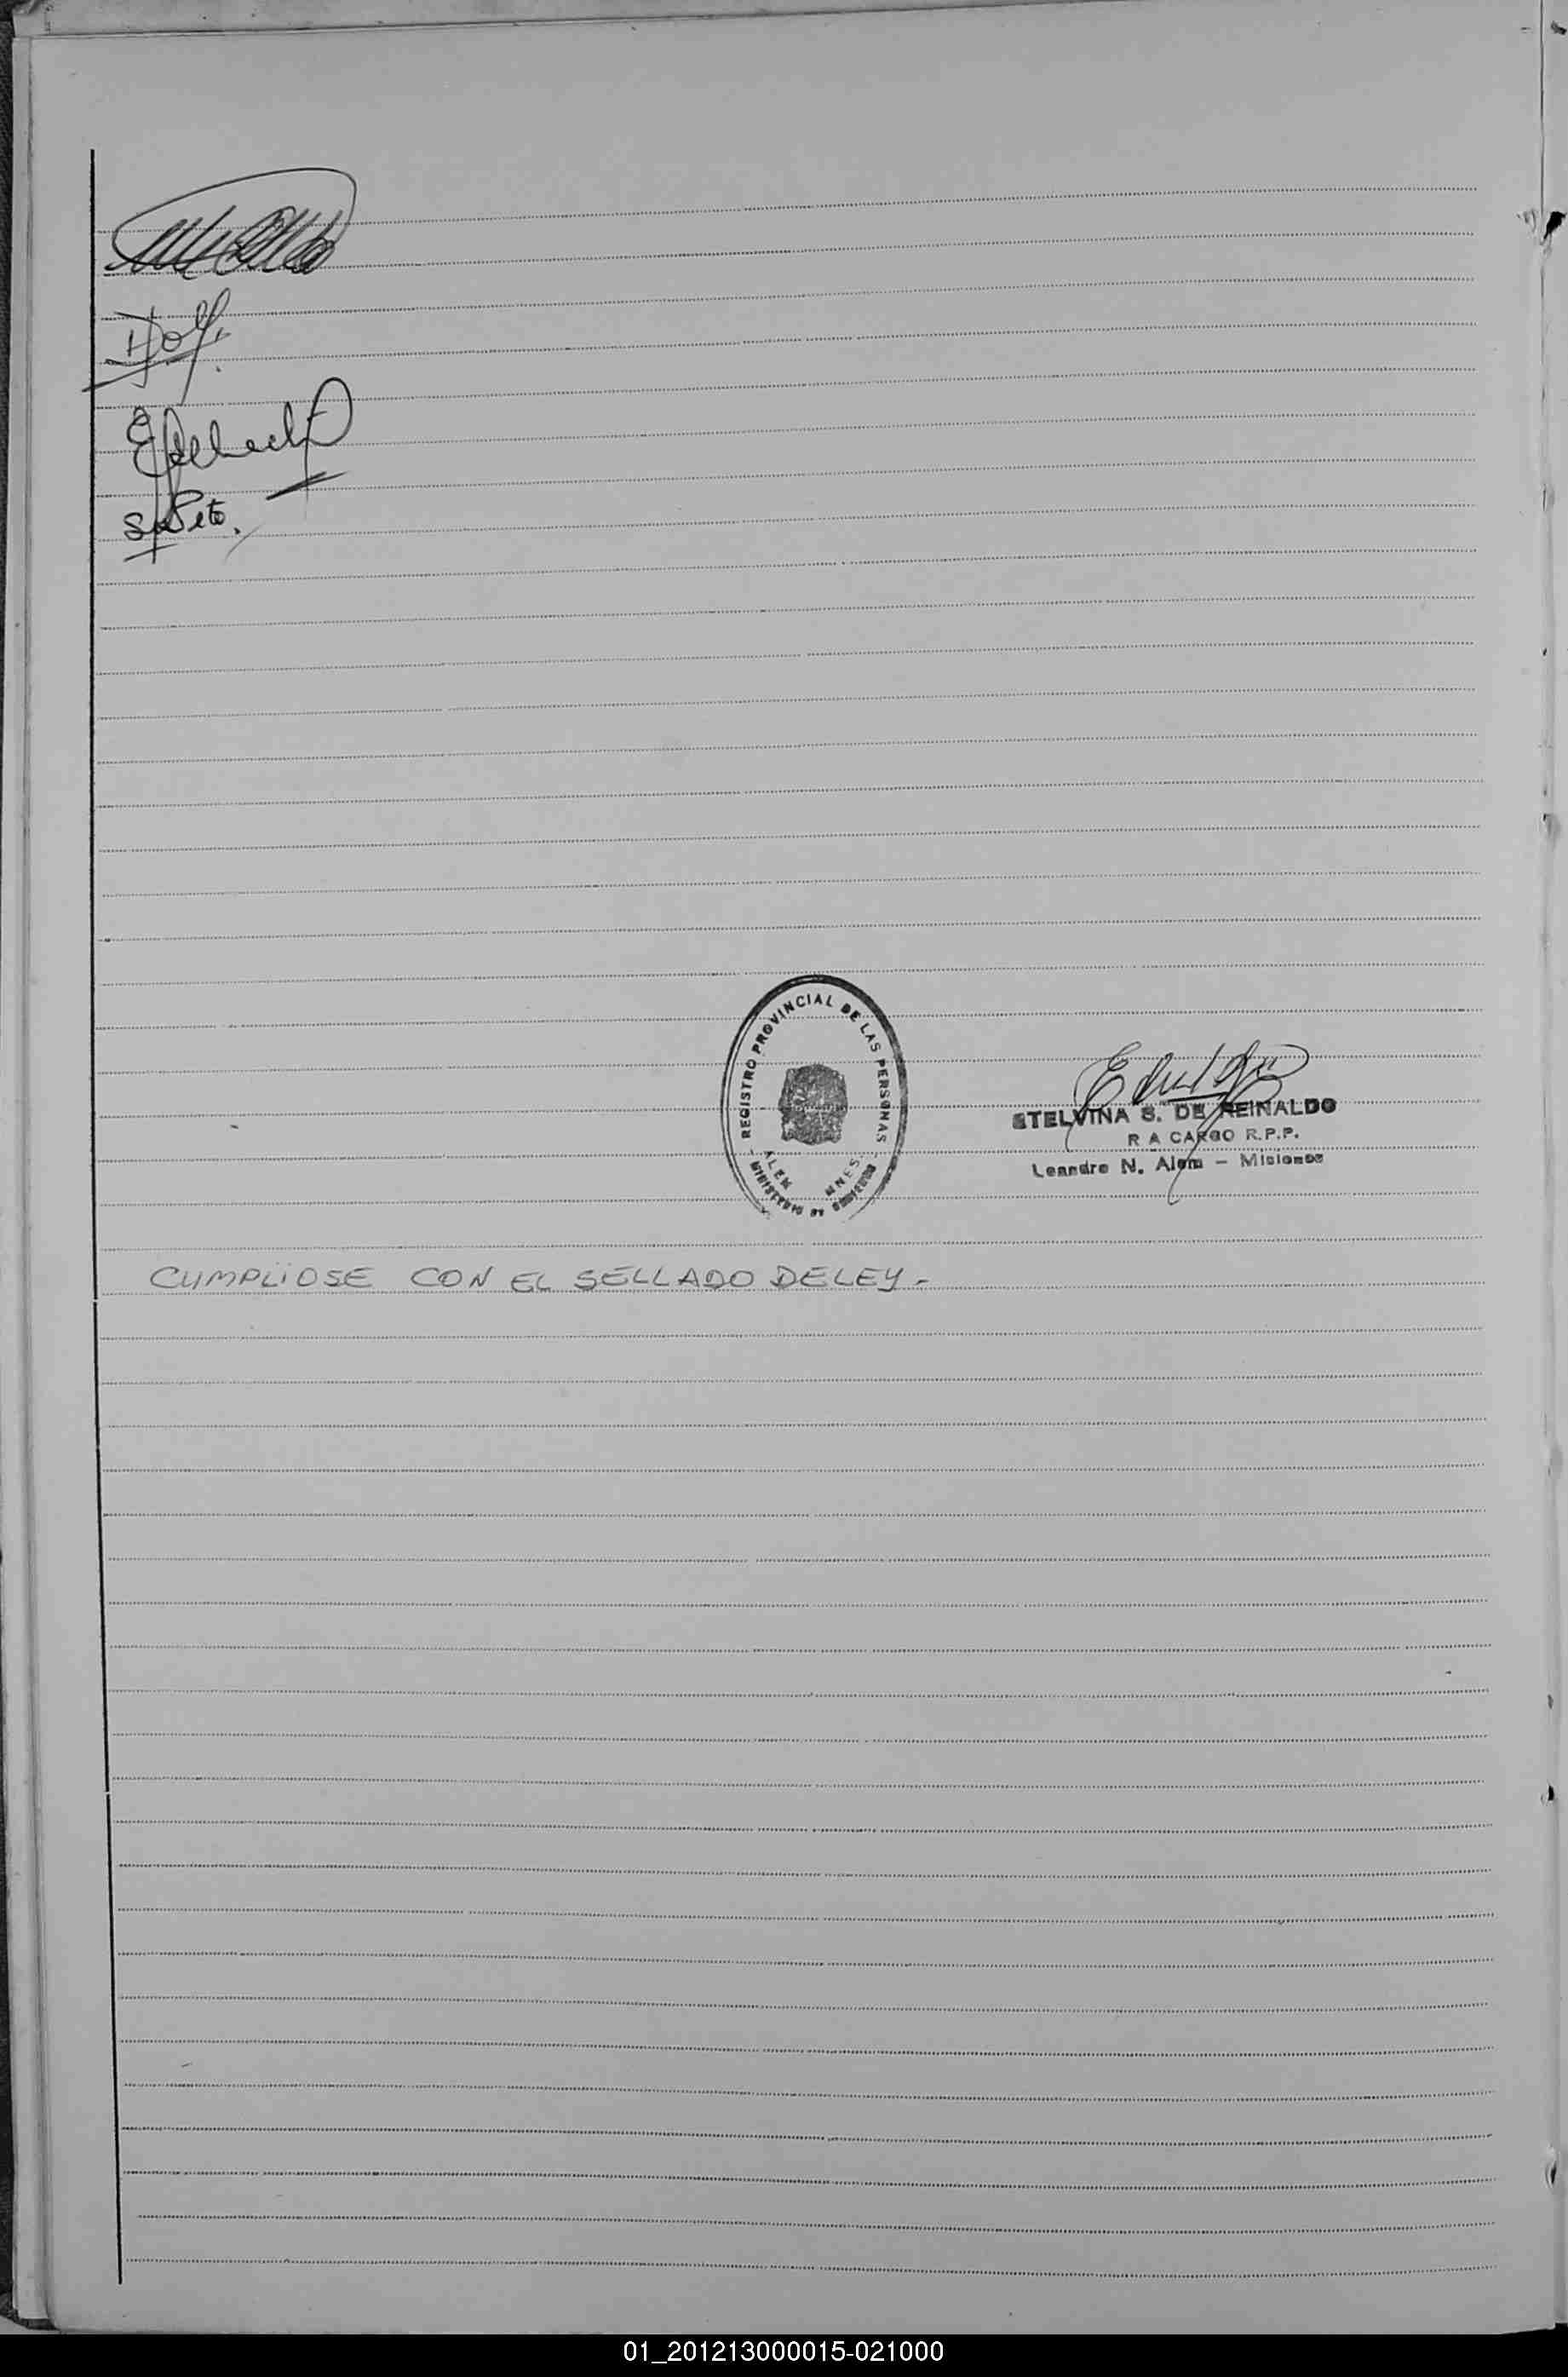 REGISTRO PROVINCIAL DE LAS PERSONAS
ALEM MNES.
MINISTERIO DE GOBIERNO
STELVINA S. DE REINALDO
R A CARGO R.P.P.
Leandro N. Alem - Misiones
CUMPLIOSE CON EL SELLADO DE LEY.-
01_201213000015-021000